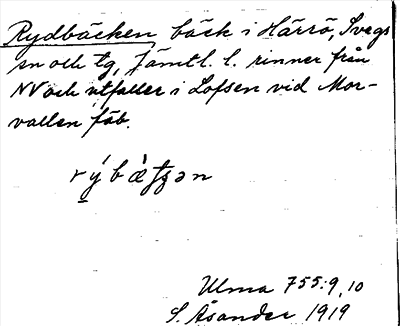 Rydbäcken bäck i Härrö, Svegs
sn och tg, Jämtl. l. rinner från
NV och utfaller i Lofsen vid Mor-
vallen fäb.
rýbæ̀tʃən
Ulma 755:9, 10
S. Åsander 1919